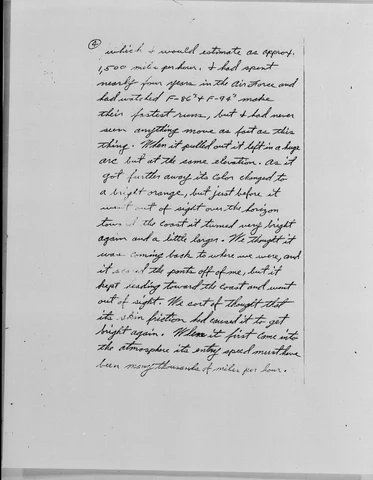 4
which I would estimate as approx.
1,500 miles per hour. I had spent
nearly four years in the Air Force and
had watched F-86's & F-94's make
their fastest runs, but I had never
seen anything move as fast as this
thing. When it pulled out it left in a huge
arc but at the same elevation. As it
got further away its color changed to
a bright orange, but just before it
went out of sight over the horizon
toward the coast it turned very bright
again and a little larger. We thought it
was coming back to where we were, and
it scared the pants off of me, but it
kept heading toward the coast and went
out of sight. We sort of thought that
its skin friction had caused it to get
bright again. When it first came into
the atmosphere its entry speed must have
been many thousands of miles per hour.